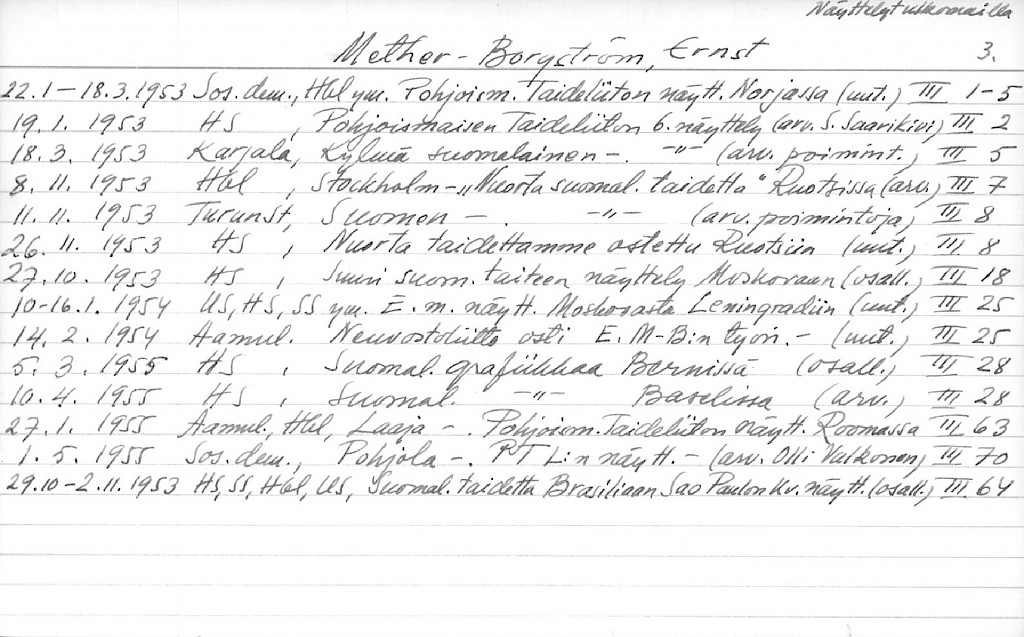 Näyttelyt ulkomailla
Mether-Borgström, Ernst 3.
22.1-18.3.1953 Sos.dem., Hbl ym. Pohjoism. Taideliiton näytt. Norjassa (uut.) III 1-5
19.1. 1953 HS , Pohjoismaisen Taideliiton 6. näyttely (arv. S. Saarikivi) III 2
18.3. 1953 Karjala, Kylmä suomalainen -. -"- (arv. poimint.) III 5
8. 11. 1953 Hbl , Stockholm - "Nuorta suomal. taidetta" Ruotsissa (arv.) III 7
11. 11. 1953 Turunst, Suomen - . -"- (arv. poimintoja) III 8
26. 11. 1953 HS , Nuorta taidettamme ostettu Ruotsiin (uut.) III 8
27.10. 1953 HS , Suuri suom. taiteen näyttely Moskovaan (osall.) III 18
10-16.1. 1954 US, HS, SS ym. E.m. näytt. Moskovasta Leningradiin (uut.) III 25
14. 2. 1954 Aamul. Neuvostoliitto osti E. M-B:n työn.- (uut.) III 25
5. 3. 1955 HS , Suomal. grafiikkaa Bernissä (osall.) III 28
10. 4. 1955 HS , Suomal. -"- Baselissa (arv.) III 28
27.1. 1955 Aamul., Hbl, Laaja -. Pohjoism. Taideliiton näytt. Roomassa III 63
1. 5. 1955 Sos.dem., Pohjola -. PT L:n näytt. - (arv. Olli Valkonen) III 70
29.10-2.11.1953 HS, SS, Hbl, US, Suomal. taidetta Brasiliaan Sao Paulon kv. näytt. (osall.) III 64